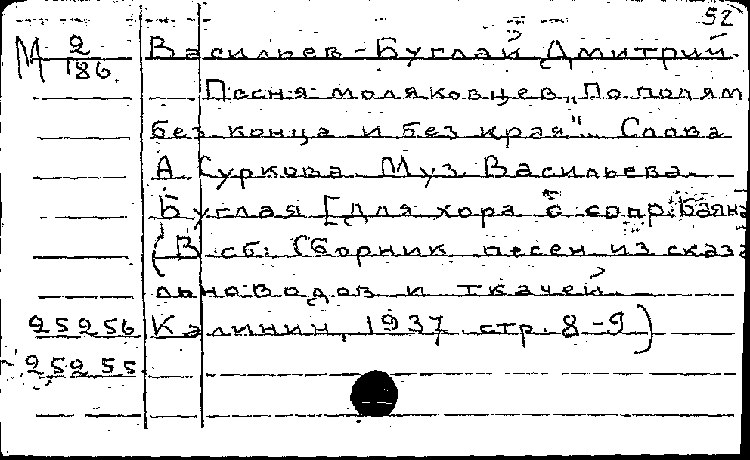 52
М 2/186. Васильев-Буглай Дмитрий.
Песня моляковцев „По полям
без конца и без края". Слова
А. Суркова. Муз. Васильева-
Буглая [для хора с сопр. баяна
(В сб: Сборник песен из сказа
льноводов и ткачей.
25256 Калинин, 1937 стр. 8-9)
25255.